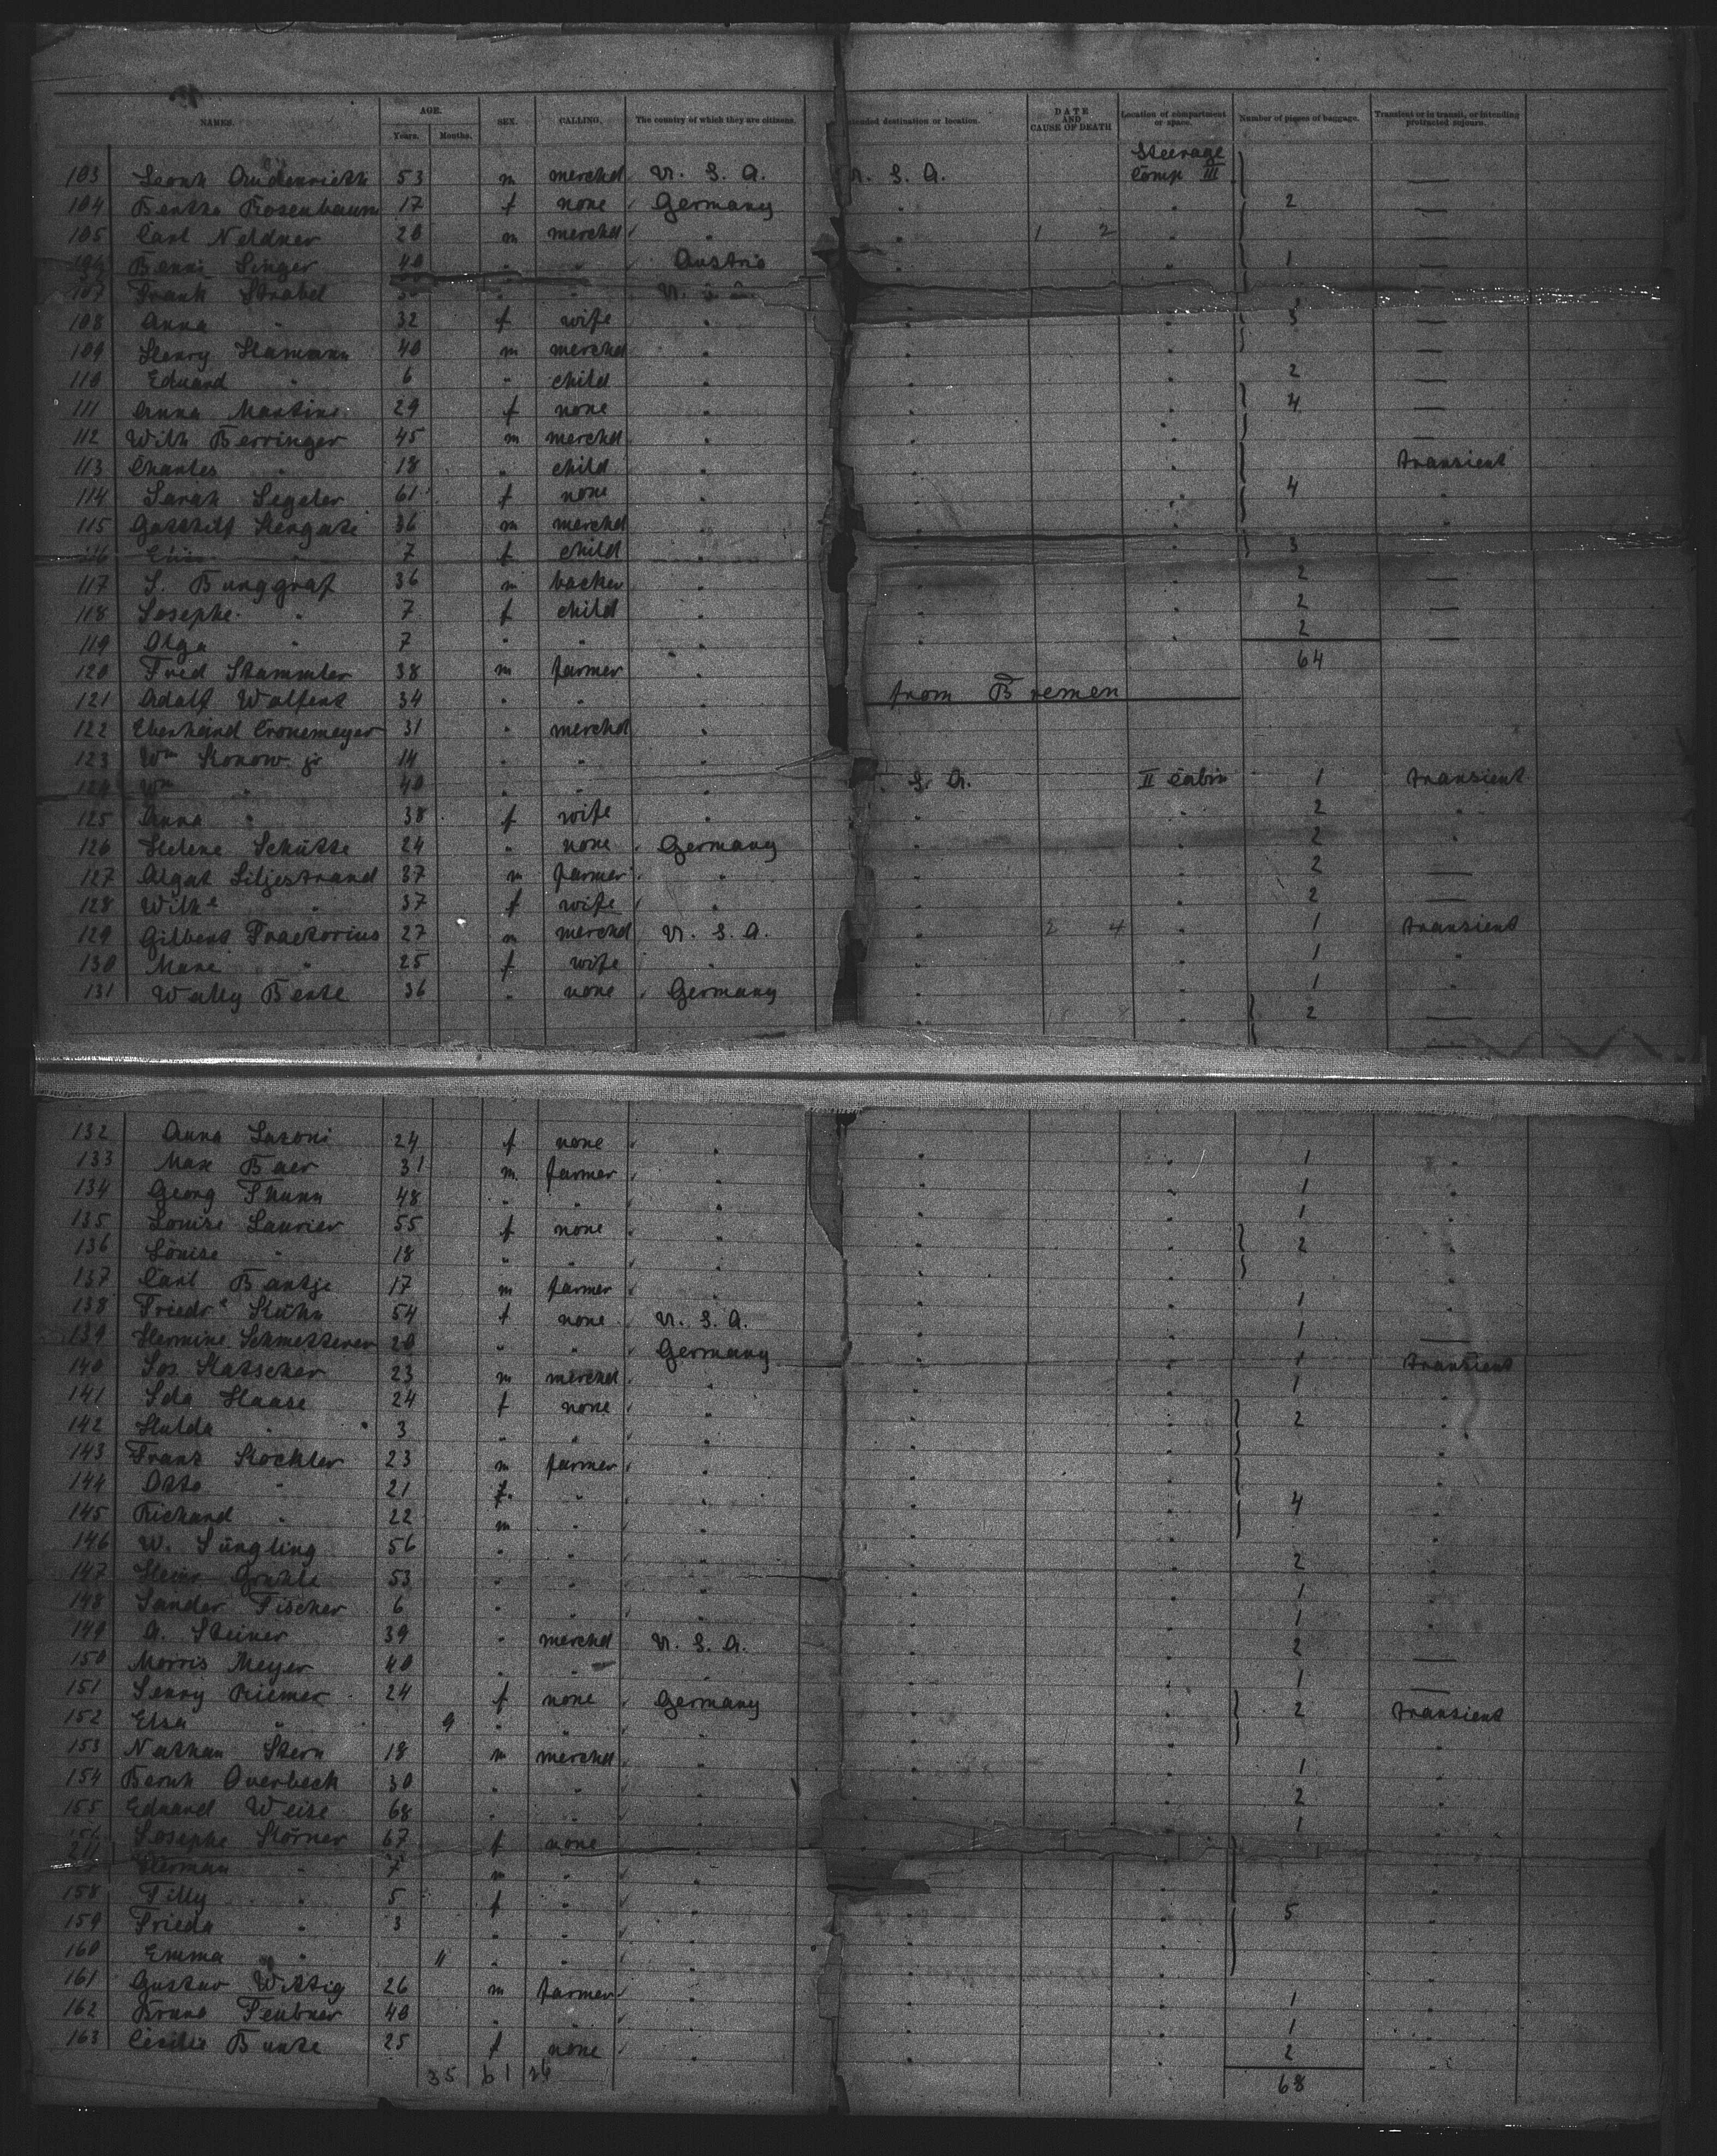 NAMES. AGE. Years. Months. SEX. CALLING. The country of which they are citizens. destination or location. DATE AND CAUSE OF DEATH Location of compartment or space. Number of pieces of baggage. Transient or in transit, or intending protracted sojourn.
Steerage
103 53 m merchd U. S. A. S. A. Comp III —
104 Rosenbaum 17 f none Germany " " 2 —
105 Carl Neldner 20 m merchd " " 1 2 " —
Singer 40 " " Austria " " 1 —
107 Frank Strobel " " U. S. A.
108 Anna " 32 f wife " " " 3 —
109 Henry Hamann 40 m merchd " " " —
110 Eduard " 6 " child " " " 2 —
111 Anna Martins 29 f none " " " 4 —
112 Wilh Berringer 45 m merchd " " " —
113 Charles " 18 " child " " " transient
114 Sarah Segeler 61 f none " " " 4 "
115 36 m merchd " " " "
7 f child " " " 3
117 J. Burggraf 36 m backer " " " 2 —
118 Josephe " 7 f child " " " 2 —
119 Olga " 7 " " " " " 2 —
120 Fred Stammler 38 m farmer " 64
121 Adolf Walfert 34 " " " from Bremen
122 Eberhard Cronemeyer 31 " merchd "
123 Wm Konow jr 14 " " "
Wm " 40 " " " S. A. II Cabin 1 transient
125 Anna " 38 f wife " " " 2 "
126 Helene Schütte 24 " none Germany " " 2 "
127 Algot Liljestrand 37 m farmer " " " 2 —
128 Wilhe " 37 f wife " " " 2 —
129 Gilbert Praetorius 27 m merchd U. S. A. " 2 4 " 1 transient
130 Marie " 25 f wife " " " 1 "
131 Wally Bente 36 " none Germany 1 "
" " 2 —
132 Anna Lasoni 24 f none " " " 1 "
133 Max Baer 31 m farmer " " " 1 "
134 Georg 48 " " " " " 1 "
135 Louise Laurier 55 f none " " " 2 "
136 Louise " 18 " " " " " "
137 Carl Bantje 17 m farmer " " " 1 "
138 Friedre Kühn 54 f none U. S. A. " " 1 —
139 Hermine Schmetterer 20 " " Germany " " 1 transient
140 Jos Katscher 23 m merchd " " " 1 "
141 Ida Haase 24 f none " " " 2 "
142 Hulda " 3 " " " " " "
143 Franz Köchler 23 m farmer " " " "
144 Otto " 21 f " " " " 4 "
145 Richard " 22 m " " " " "
146 W. Jüngling 56 " " " " " 2 "
147 Heinr 53 " " " " " 1 "
148 Sander Fischer 6 " " " " " 1 "
149 A. Steiner 39 " merchd U. S. A. " " 2 —
150 Morris Meyer 40 " " " " " 1 —
151 Jenny Riemer 24 f none Germany " " 2 transient
152 Elsa " 9 " " " " " "
153 Nathan Stern 18 m merchd " " " 1 "
154 Bernh Overbeck 30 " " " " " 2 "
155 Eduard Weise 68 " " " " " 1 "
Josephe Körner 67 f none " " " "
Herman " 7 m " " "
158 Tilly " 5 f " " " " 5 "
159 Frieda " 3 " " " " " "
160 Emma " 11 " " " " " "
161 Gustav Wittig 26 m farmer " " " 1 "
162 Bruno Teubner 40 " " " " " 1 "
163 Cecilie Bunte 25 f none " " " 2 "
35 61 26 68